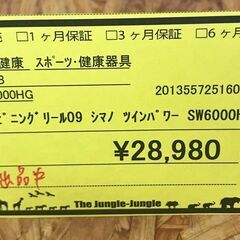 □1ヶ月保証 □3ヶ月保証 □6ヶ月
健康 スポーツ・健康器具
000HG 201355725160
ピニングリール09 シマノ ツインパワー SW6000H
¥28,980
出品中
The Jungle-Jungle